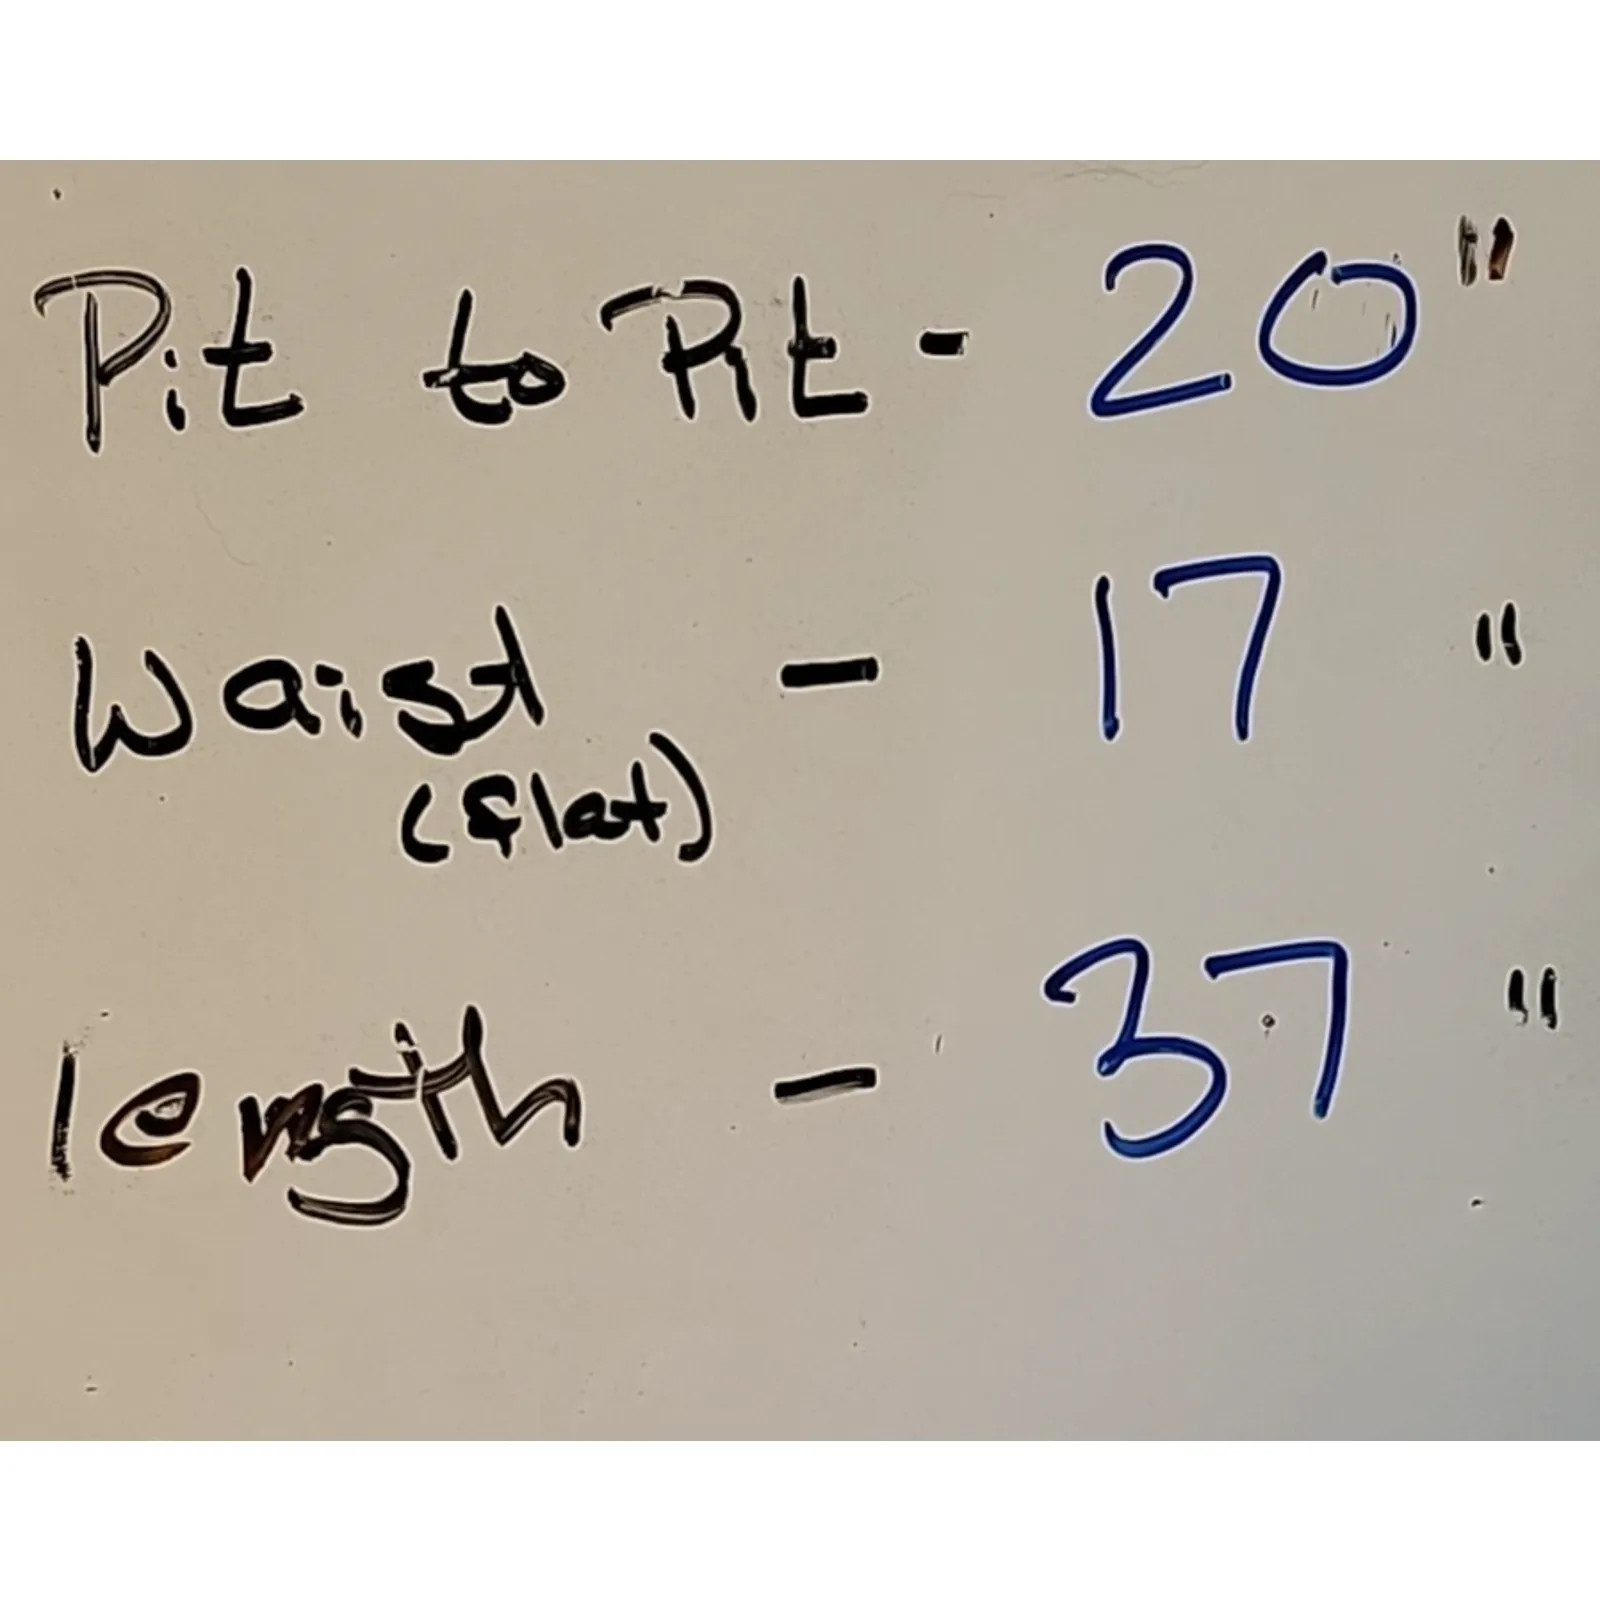 Pit to Pit - 20"
Waist - 17"
(flat)
length - 37"